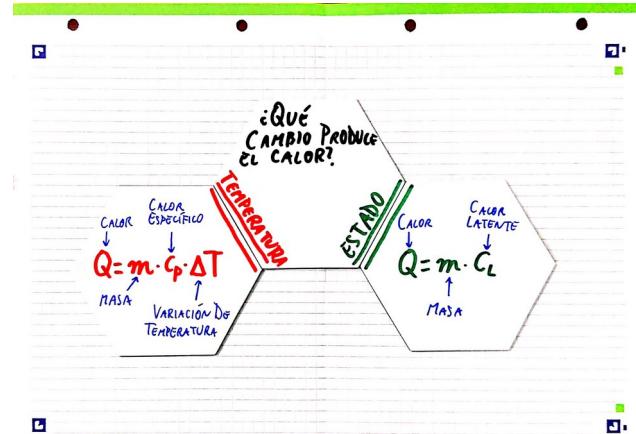 ¿QUÉ
CAMBIO PRODUCE
EL CALOR?
TEMPERATURA
ESTADO
CALOR
CALOR
ESPECÍFICO
Q = m · Cp · ΔT
MASA
VARIACIÓN DE
TEMPERATURA
CALOR
CALOR
LATENTE
Q = m · CL
MASA